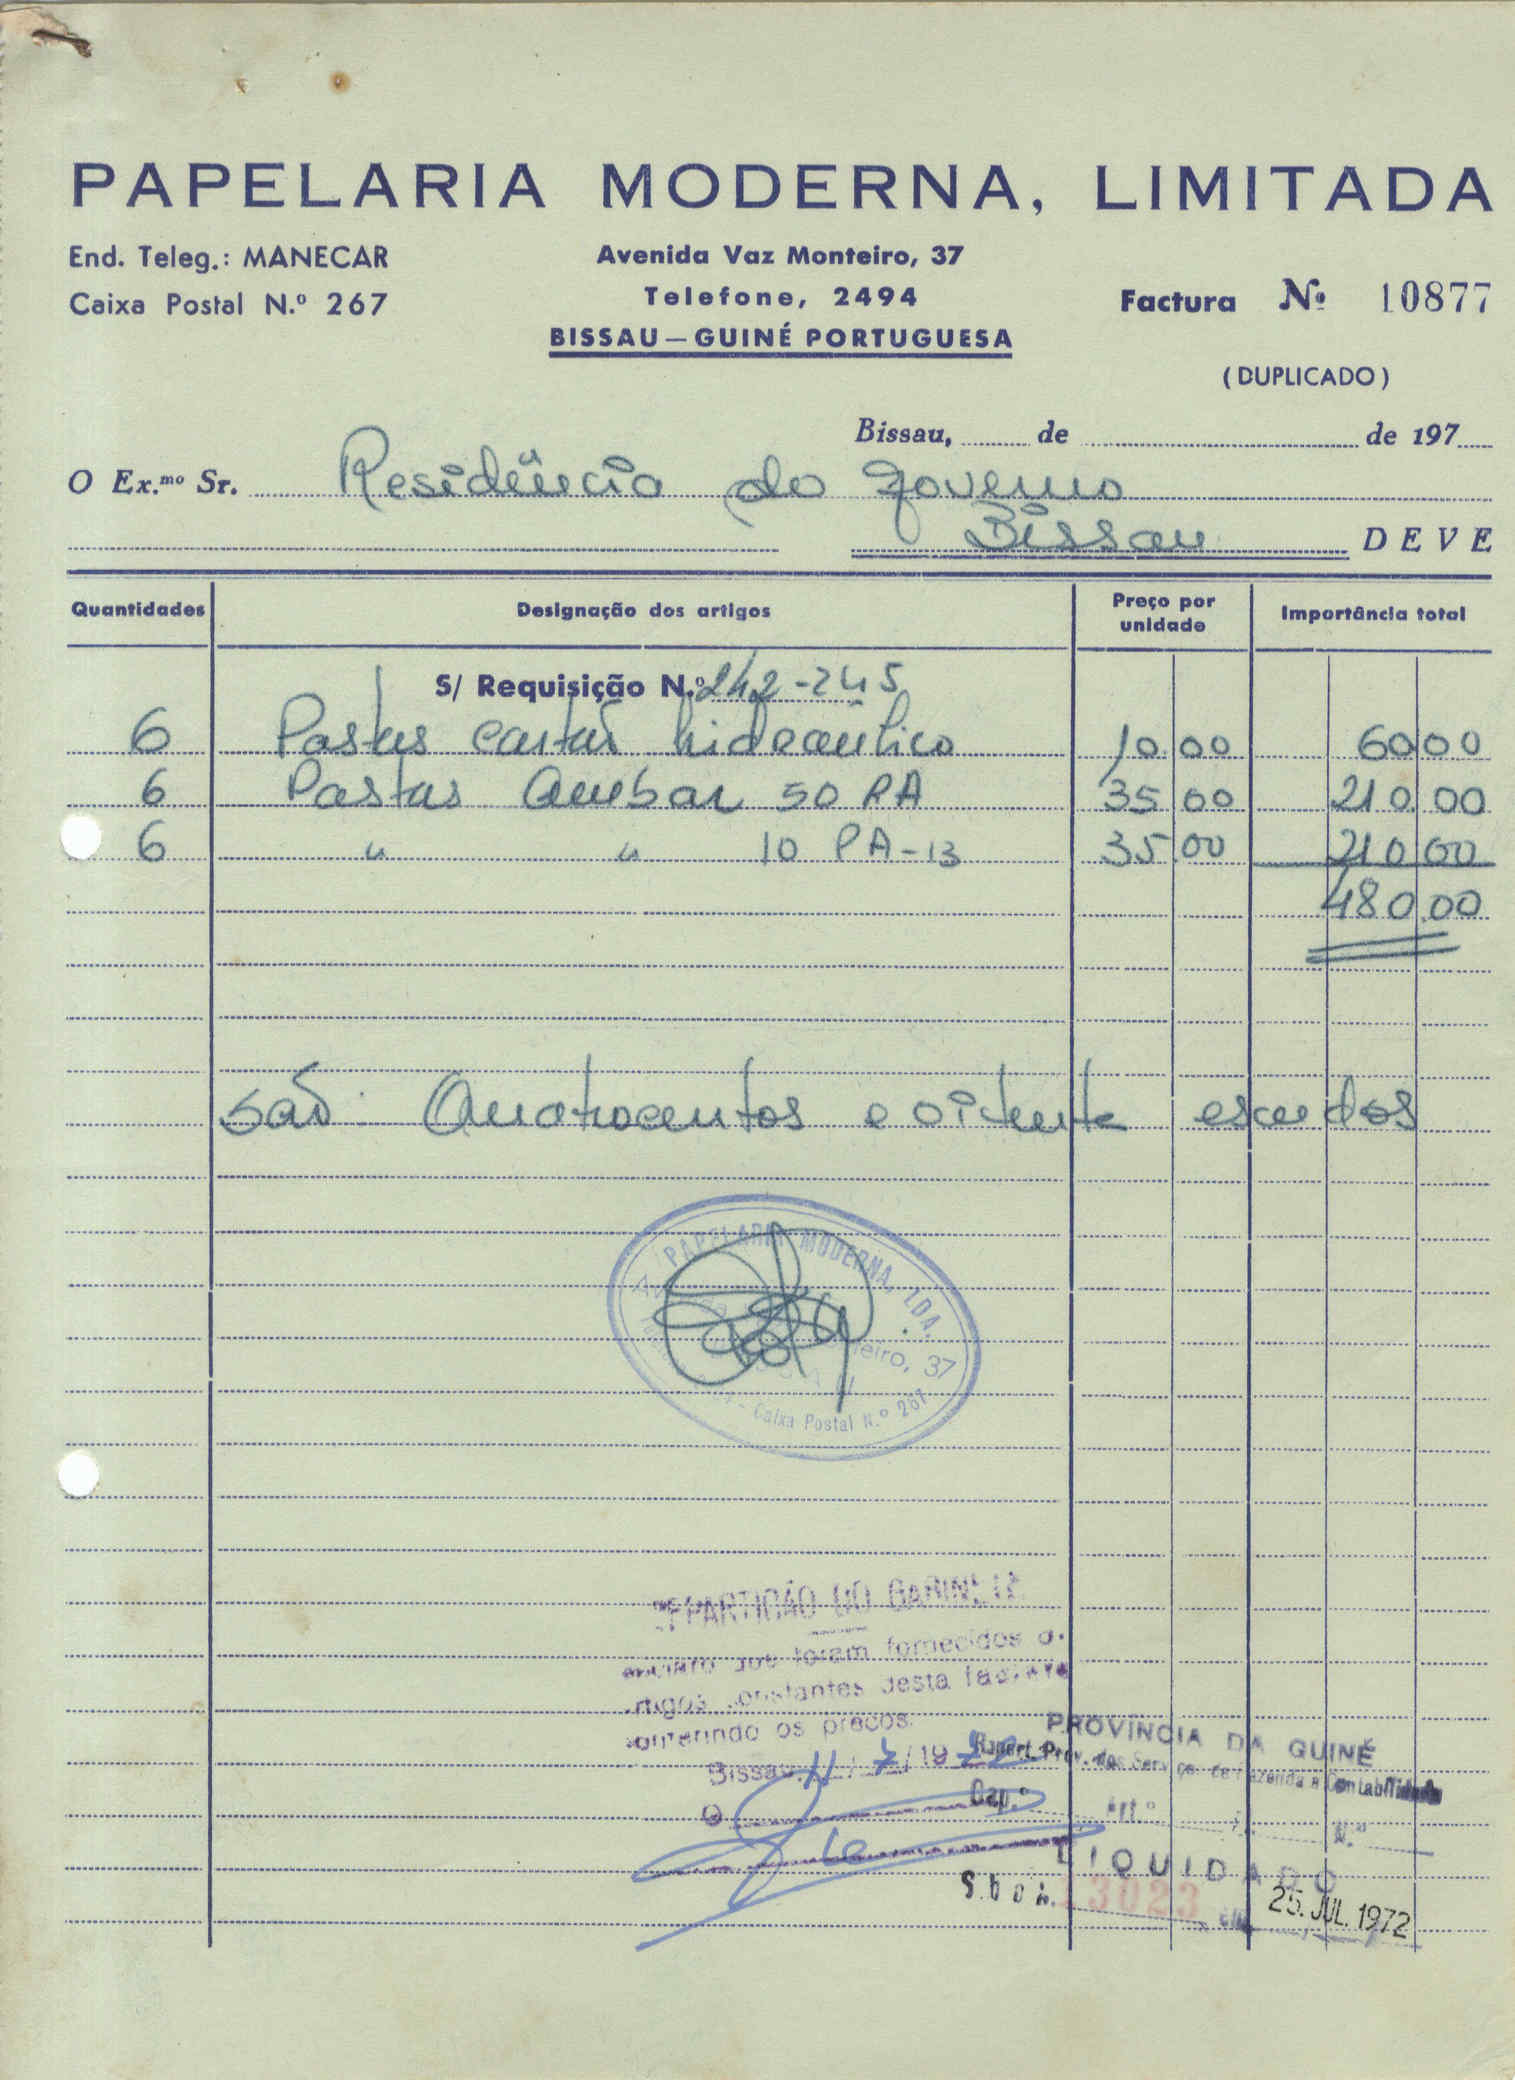 PAPELARIA MODERNA, LIMITADA
End. Teleg.: MANECAR
Avenida Vaz Monteiro, 37
Caixa Postal N.º 267
Telefone, 2494
Factura Nº 10877
BISSAU — GUINÉ PORTUGUESA
(DUPLICADO)
Bissau, de de 197
O Ex.mo Sr. Residência do Governo
Bissau DEVE
Quantidades Designação dos artigos Preço por unidade Importância total
S/ Requisição N.º 242-245
6 Pastas cartão hidraúlico 10.00 60 00
6 Pastas Ambar 50 PA 35 00 210 00
6 " " 10 PA-13 35.00 210 00
480.00
são: Quatrocentos e oitenta escudos
PAPELARIA MODERNA, LDA.
Avenida Monteiro, 37
Caixa Postal N.º 267
REPARTIÇÃO DO GABINETE
que foram fornecidos o
constantes desta factura
os preços.
Bissau, 11 / 7 / 1972
O
PROVÍNCIA DA GUINÉ
Repart. Prov. dos Serviços de Fazenda e Contabilidade
Cap.º Art.º N.º
LIQUIDADO
13023
25. JUL. 1972